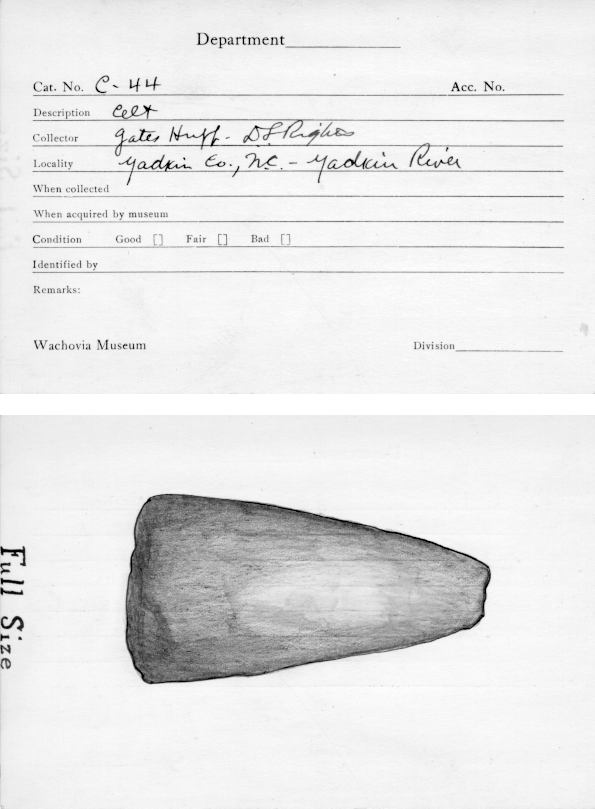 Department
Cat. No. C-44 Acc. No.
Description Celt
Collector Gates Huff - D L Rights
Locality Yadkin Co., N.C. - Yadkin River
When collected
When acquired by museum
Condition Good [] Fair [] Bad []
Identified by
Remarks:
Wachovia Museum Division
Full Size